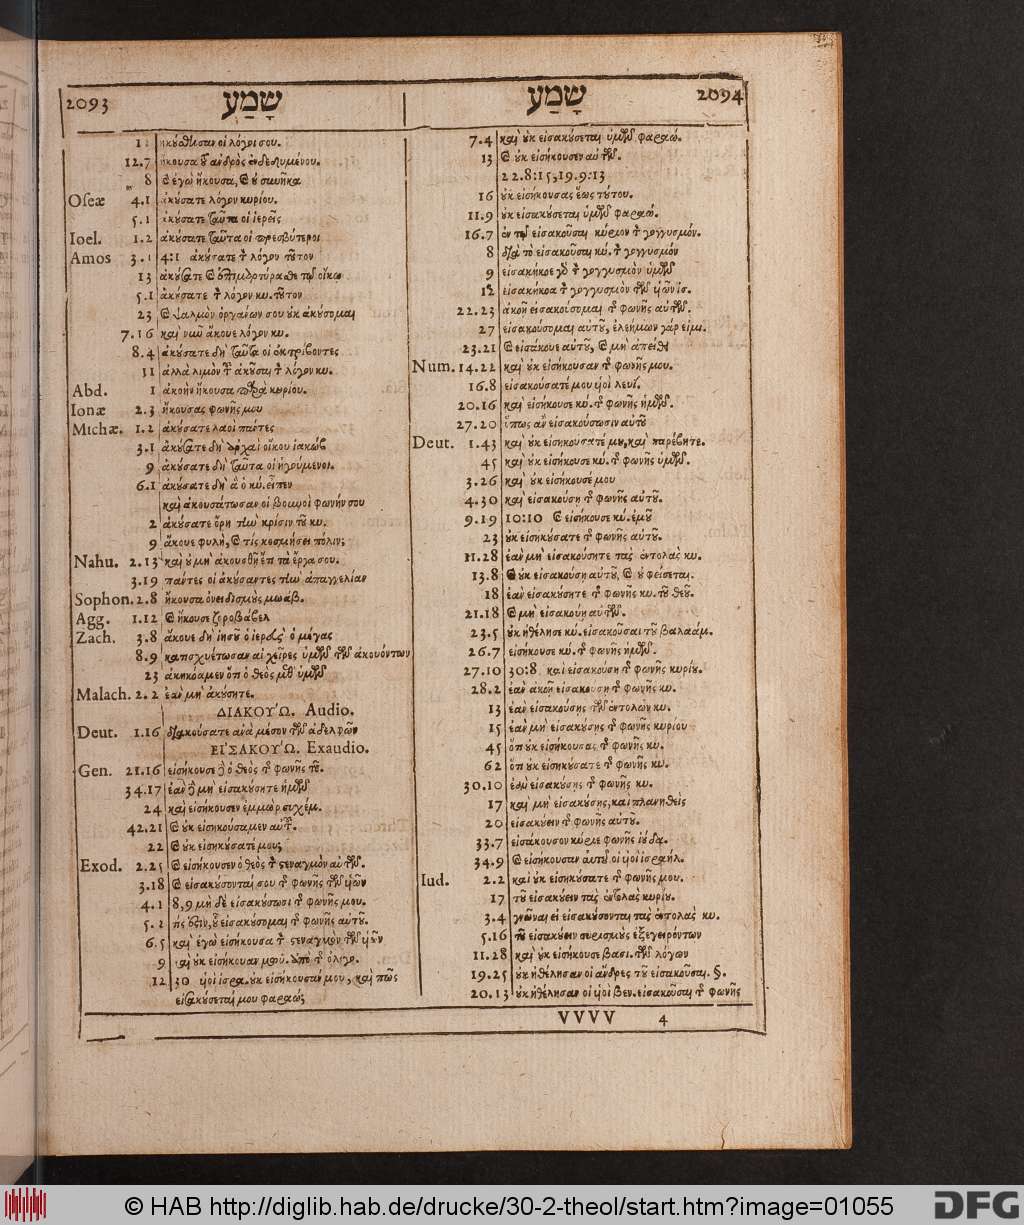 2093 שָׁמַע
ἠκούσθησαν οἱ λόγοι σου.
12.7 ἤκουσα τοῦ ἀνδρὸς ἐνδεδυμένου.
8 καὶ ἐγὼ ἤκουσα, καὶ οὐ συνῆκα
Oseæ 4.1 ἀκούσατε λόγον κυρίου.
5.1 ἀκούσατε ταῦτα οἱ ἱερεῖς
Ioel. 1.2 ἀκούσατε ταῦτα οἱ πρεσβύτεροι
Amos 3.1 4:1 ἀκούσατε τὸν λόγον τοῦτον
13 ἀκούσατε καὶ ἐπιμαρτύρασθε τῷ οἴκῳ
5.1 ἀκούσατε τὸν λόγον κυ. τοῦτον
23 καὶ ψαλμὸν ὀργάνων σου οὐκ ἀκούσομαι
7.16 καὶ νῦν ἄκουε λόγον κυ.
8.4 ἀκούσατε δὴ ταῦτα οἱ ἐκτρίβοντες
11 ἀλλὰ λιμὸν τοῦ ἀκοῦσαι τὸν λόγον κυ.
Abd. 1 ἀκοὴν ἤκουσα παρὰ κυρίου.
Ionæ 2.3 ἤκουσας φωνῆς μου
Michæ. 1.2 ἀκούσατε λαοὶ πάντες
3.1 ἀκούσατε δὴ ἀρχαὶ οἴκου ἰακώβ
9 ἀκούσατε δὴ ταῦτα οἱ ἡγούμενοι.
6.1 ἀκούσατε δὴ ἃ ὁ κύ. εἶπεν
καὶ ἀκουσάτωσαν οἱ βουνοὶ φωνήν σου
2 ἀκούσατε ὄρη τὴν κρίσιν τοῦ κυ.
9 ἄκουε φυλὴ, καὶ τίς κοσμήσει πόλιν;
Nahu. 2.13 καὶ οὐ μὴ ἀκουσθῇ ἔτι τὰ ἔργα σου.
3.19 πάντες οἱ ἀκούσαντες τὴν ἀπαγγελίαν
Sophon. 2.8 ἤκουσα ὀνειδισμοὺς μωάβ.
Agg. 1.12 καὶ ἤκουσε ζοροβάβελ
Zach. 3.8 ἄκουε δὴ ἰησοῦ ὁ ἱερεὺς ὁ μέγας
8.9 κατισχυέτωσαν αἱ χεῖρες ὑμῶν τῶν ἀκουόντων
23 ἀκηκόαμεν ὅτι ὁ θεὸς μεθ' ὑμῶν
Malach. 2.2 ἐὰν μὴ ἀκούσητε.
ΔΙΑΚΟΥΩ. Audio.
Deut. 1.16 διακούσατε ἀνὰ μέσον τῶν ἀδελφῶν
ΕΙΣΑΚΟΥΩ. Exaudio.
Gen. 21.16 εἰσήκουσε δὲ ὁ θεὸς τῆς φωνῆς τοῦ.
34.17 ἐὰν δὲ μὴ εἰσακούσητε ἡμῶν
24 καὶ εἰσήκουσεν ἐμμὼρ συχέμ.
42.21 καὶ οὐκ εἰσηκούσαμεν αὐτοῦ.
22 καὶ οὐκ εἰσηκούσατέ μου;
Exod. 2.25 καὶ εἰσήκουσεν ὁ θεὸς τὸν στεναγμὸν αὐτῶν.
3.18 καὶ εἰσακούσονταί σου τῆς φωνῆς τῶν υἱῶν
4.1 8,9 μὴ δὲ εἰσακούσωσι τῆς φωνῆς μου.
5.2 τίς ἐστιν, οὗ εἰσακούσομαι τῆς φωνῆς αὐτοῦ.
6.5 καὶ ἐγὼ εἰσήκουσα τὸν στεναγμὸν τῶν υἱῶν
9 καὶ οὐκ εἰσήκουσαν μωυ. ἀπὸ τῆς ὀλιγο.
12 30 υἱοὶ ἰσρα. οὐκ εἰσήκουσάν μου, καὶ πῶς
εἰσακούσεταί μου φαραώ;
שָׁמַע 2094
7.4 καὶ οὐκ εἰσακούσεται ὑμῶν φαραώ.
13 καὶ οὐκ εἰσήκουσεν αὐτῶν.
22.8:15,19.9:13
16 οὐκ εἰσήκουσας ἕως τούτου.
11.9 οὐκ εἰσακούσεται ὑμῶν φαραώ.
16.7 ἐν τῷ εἰσακοῦσαι κύριον τὸν γογγυσμόν.
8 διὰ τὸ εἰσακοῦσαι κύ. τὸν γογγυσμὸν
9 εἰσακήκοε γὰρ τὸν γογγυσμὸν ὑμῶν
12 εἰσακήκοα τὸν γογγυσμὸν τῶν υἱῶν ἰσ.
22.23 ἀκοῇ εἰσακούσομαι τῆς φωνῆς αὐτῶν.
27 εἰσακούσομαι αὐτοῦ, ἐλεήμων γάρ εἰμι.
23.21 καὶ εἰσάκουε αὐτοῦ, καὶ μὴ ἀπείθει
Num. 14.22 καὶ οὐκ εἰσήκουσαν τῆς φωνῆς μου.
16.8 εἰσακούσατέ μου υἱοὶ λευί.
20.16 καὶ εἰσήκουσε κύ. τῆς φωνῆς ἡμῶν.
27.20 ὅπως ἂν εἰσακούσωσιν αὐτοῦ
Deut. 1.43 καὶ οὐκ εἰσηκούσατέ μου, καὶ παρέβητε.
45 καὶ οὐκ εἰσήκουσε κύ. τῆς φωνῆς ὑμῶν.
3.26 καὶ οὐκ εἰσήκουσέ μου
4.30 καὶ εἰσακούσῃ τῆς φωνῆς αὐτοῦ.
9.19 10:10 καὶ εἰσήκουσε κύ. ἐμοῦ
23 οὐκ εἰσηκούσατε τῆς φωνῆς αὐτοῦ.
11.28 ἐὰν μὴ εἰσακούσητε τὰς ἐντολὰς κυ.
13.8 καὶ οὐκ εἰσακούσῃ αὐτοῦ, καὶ οὐ φείσεται.
18 ἐὰν εἰσακούσητε τῆς φωνῆς κυ. τοῦ θεοῦ.
21.18 καὶ μὴ εἰσακούῃ αὐτῶν.
23.5 οὐκ ἠθέλησε κύ. εἰσακοῦσαι τοῦ βαλαάμ.
26.7 εἰσήκουσε κύ. τῆς φωνῆς ἡμῶν.
27.10 30:8 καὶ εἰσακούσῃ τῆς φωνῆς κυρίου.
28.2 ἐὰν ἀκοῇ εἰσακούσῃ τῆς φωνῆς κυ.
13 ἐὰν εἰσακούσῃς τῶν ἐντολῶν κυ.
15 ἐὰν μὴ εἰσακούσῃς τῆς φωνῆς κυρίου
45 ὅτι οὐκ εἰσήκουσας τῆς φωνῆς κυ.
62 ὅτι οὐκ εἰσηκούσατε τῆς φωνῆς κυ.
30.10 ἐὰν εἰσακούσῃς τῆς φωνῆς κυ.
17 καὶ μὴ εἰσακούσῃς, καὶ πλανηθεὶς
20 εἰσακούειν τῆς φωνῆς αὐτοῦ.
33.7 εἰσάκουσον κύριε φωνῆς ἰούδα.
34.9 καὶ εἰσήκουσαν αὐτοῦ οἱ υἱοὶ ἰσραήλ.
Iud. 2.2 καὶ οὐκ εἰσηκούσατε τῆς φωνῆς μου.
17 τοῦ εἰσακούειν τὰς ἐντολὰς κυρίου.
3.4 γνῶναι εἰ εἰσακούσονται τὰς ἐντολὰς κυ.
5.16 τοῦ εἰσακούειν συρισμοὺς ἐξεγειρόντων
11.28 καὶ οὐκ εἰσήκουσε βασι. τῶν λόγων
19.25 οὐκ ἠθέλησαν οἱ ἄνδρες τοῦ εἰσακοῦσαι. §.
20.13 οὐκ ἠθέλησαν οἱ υἱοὶ βεν. εἰσακοῦσαι τῆς φωνῆς
VVVV 4
© HAB http://diglib.hab.de/drucke/30-2-theol/start.htm?image=01055
DFG